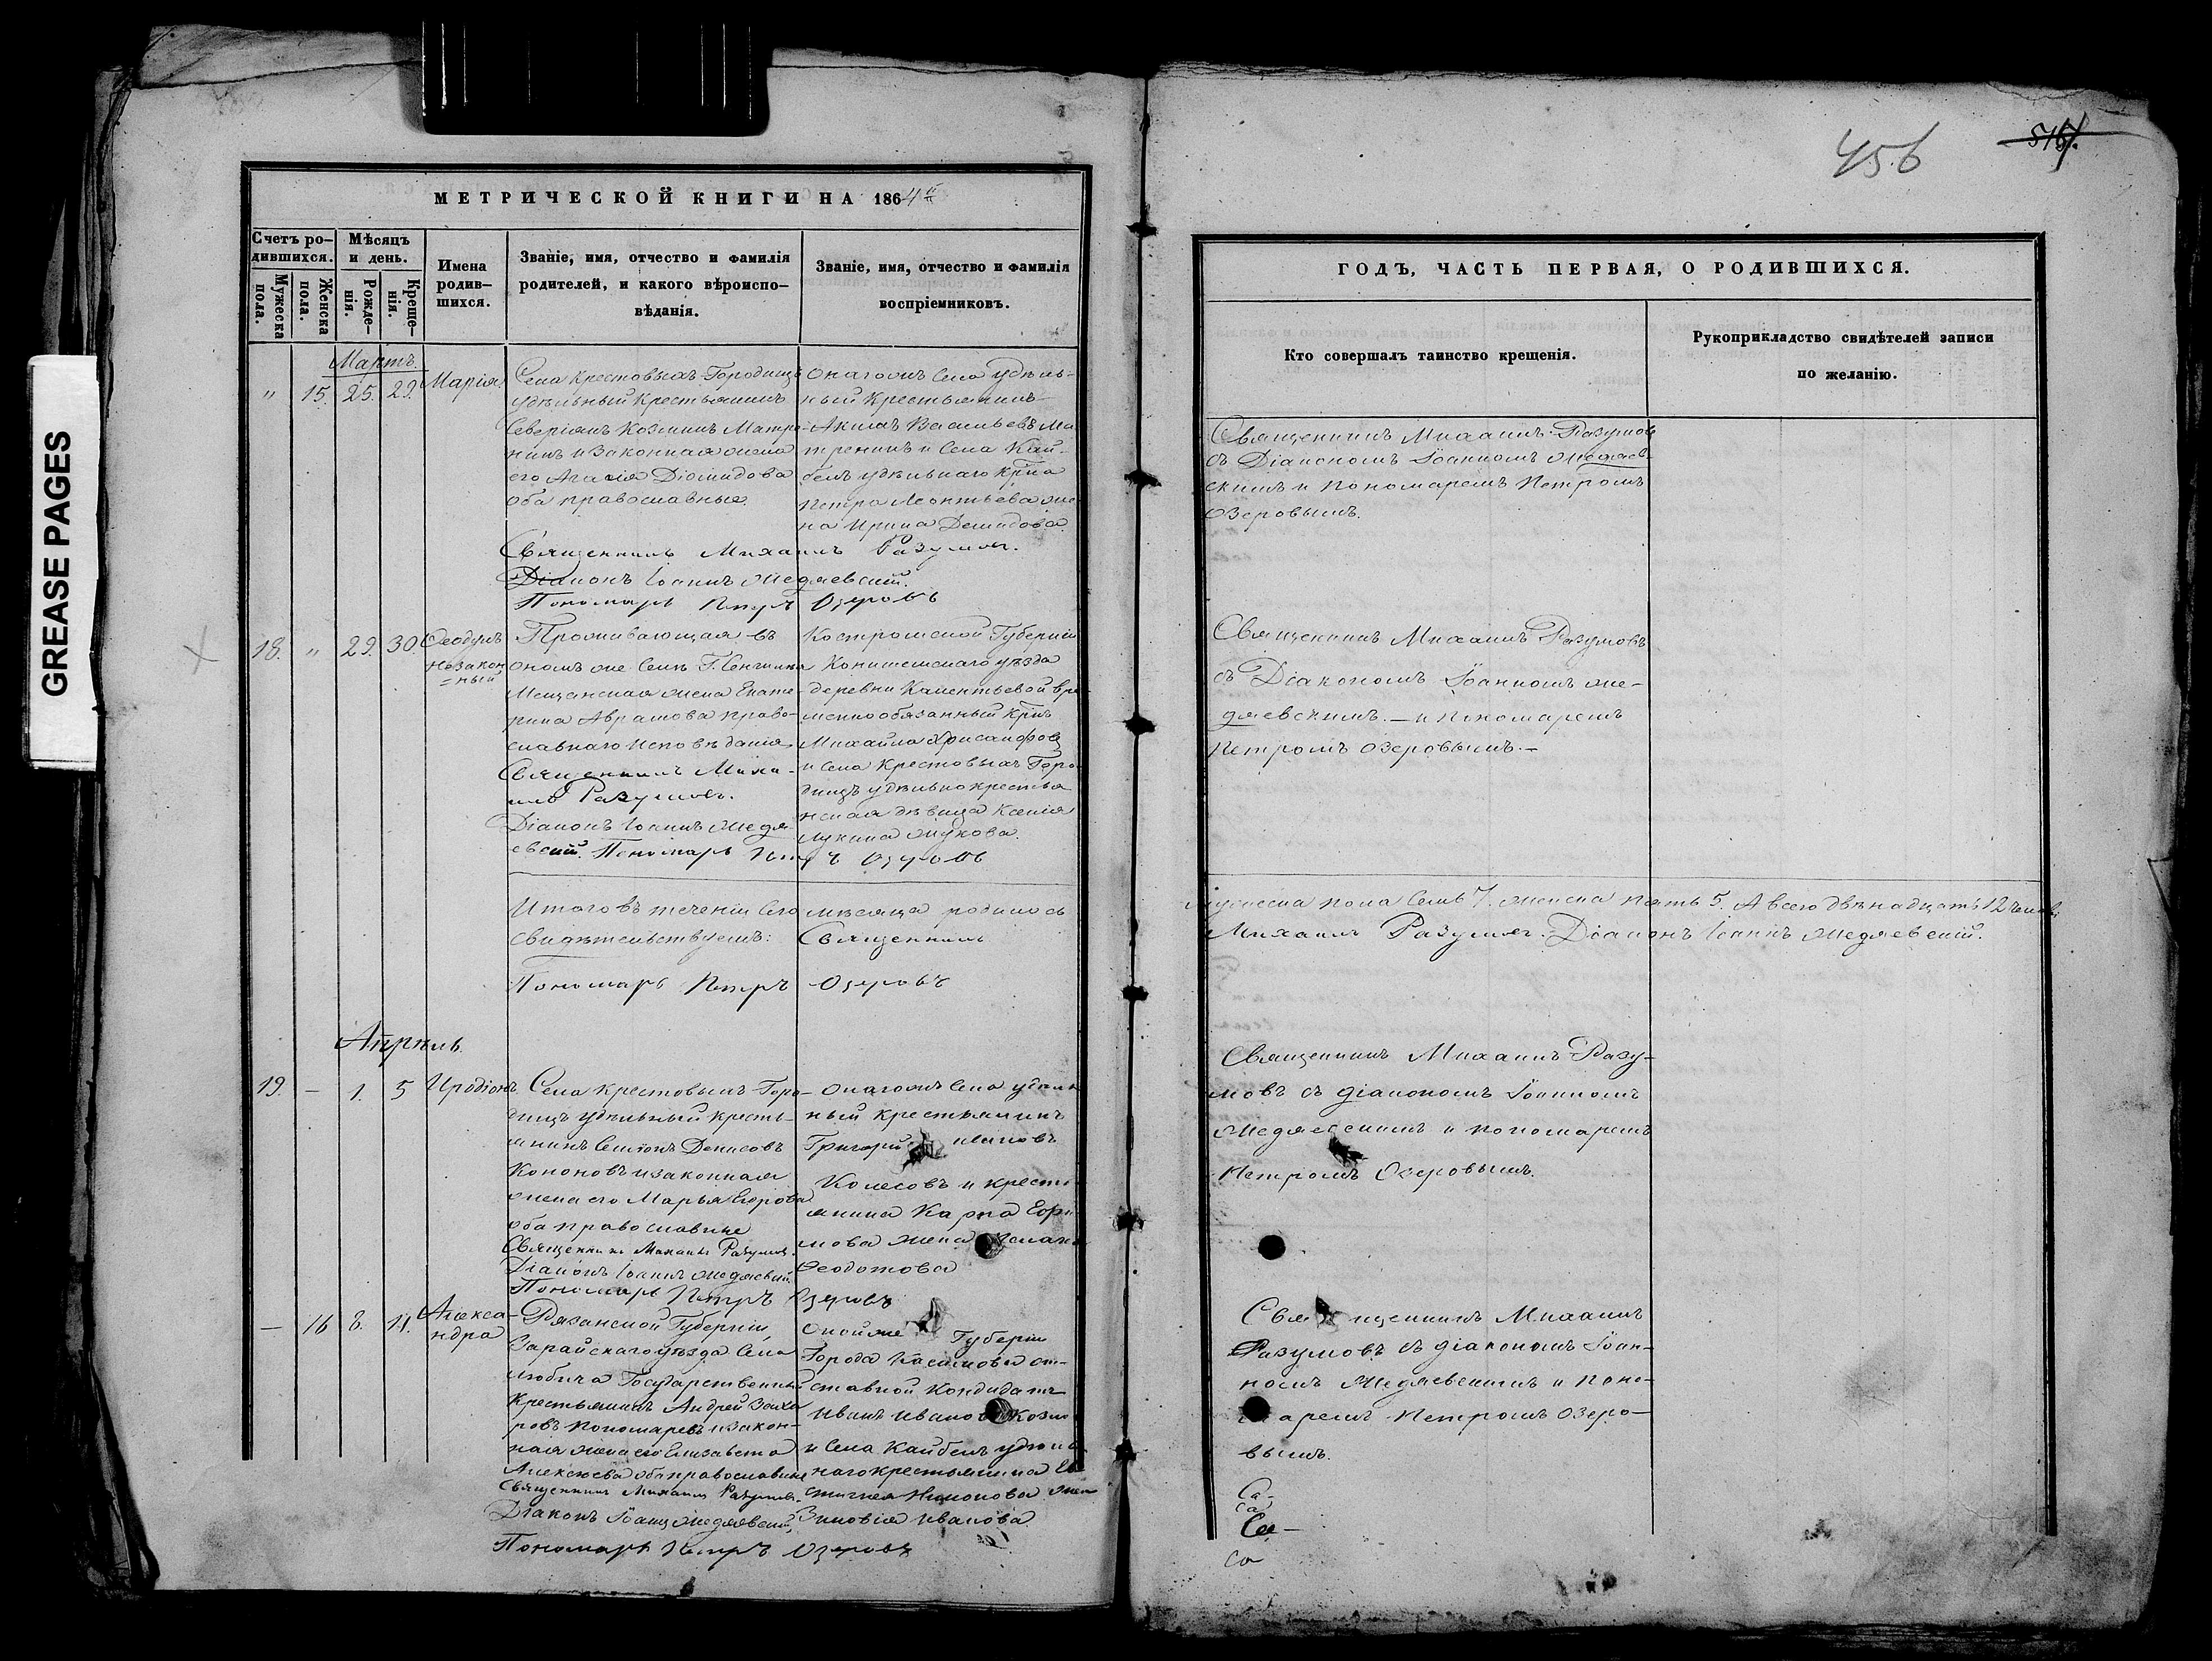 GREASE PAGES
МЕТРИЧЕСКОЙ КНИГИ НА 1864й
Счетъ ро-
дившихся.
Мужеска
пола.
Женска
пола.
Мѣсяцъ
и день.
Рожде-
нія.
Креще-
нія.
Имена
родив-
шихся.
Званіе, имя, отчество и фамилія
родителей, и какого вѣроиспо-
вѣданія.
Званіе, имя, отчество и фамилія
воспріемниковъ.
Мартъ.
" 15. 25. 29. Марія
Села Крестовыхъ-Городищъ
удѣльный Крестьянинъ
Северіанъ Козминъ Матро-
нинъ и Законная жена
его Діомидова
оба православные.
Онагожъ Села удѣль-
ный Крестьянинъ
Акимъ Васильевъ Ма
тренинъ и Села Кай-
белъ удѣльнаго
Петра Леонтьева же-
на Ирина Демидова
Священникъ Михаилъ Разумовъ.
Діаконъ Іоаннъ Медяевскій.
Пономарь Петръ Озеровъ
18. " 29. 30. Ѳеодулъ
незакон
=ный
Проживающая въ
ономъ же Селѣ Г. Сенгилея
Мещанская жена Екате-
рина Аврамова право-
славнаго исповѣданія
Священникъ Миха-
илъ Разумовъ.
Діаконъ Іоаннъ Медя-
евскій. Пономарь Петръ Озеровъ
Костромской Губерніи
уѣзда
деревни вре-
меннообязанный
Михайла Хрисанфовъ
и Села Крестовыхъ Горо-
дищъ удѣльно крестья
нская дѣвица Ксенія
Лукина Жукова.
Итого въ теченіи Сего мѣсяца родилось
свидѣтельствуемъ: Священникъ
Пономарь Петръ Озеровъ
Апрѣль
19. — 1. 5 Иродіонъ
Села Крестовыхъ-Горо-
дищъ удѣльный кресть-
янинъ Семіонъ Денисовъ
Кононовъ и законная
жена его Марья Егорова
оба православные
Священникъ Михаилъ Разумовъ.
Діаконъ Іоаннъ Медяевскій
Пономарь Петръ Озеровъ
Онагожъ Села удѣль
ный крестьянинъ
Григорій Ивановъ
Колесовъ и кресть
янина Карпа
жена
Ѳеодотова
— 16 8. 11. Алекса-
ндра
Рязанской Губерніи,
Зарайскаго уѣзда Села
Любича Государственный
крестьянинъ Андрей Заха
ровъ Пономаревъ и закон-
ная жена его Елизавета
Алексѣева оба православные
Священникъ Михаилъ Разумовъ.
Діаконъ Іоаннъ Медяевскій,
Пономарь Петръ Озеровъ
Онойже Губерніи
Города Касимова от-
ставной Кондидатъ
Иванъ Ивановъ
и Села Кайбелъ удѣль
наго крестьянина Ев
стигнея жена
Зиновія Иванова.
456
516.
ГОДЪ, ЧАСТЬ ПЕРВАЯ, О РОДИВШИХСЯ.
Кто совершалъ таинство крещенія.
Рукоприкладство свидѣтелей записи
по желанію.
Священникъ Михаилъ Разумовъ
съ Діакономъ Іоанномъ Медяев-
скимъ и пономаремъ Петромъ
Озеровымъ.
Священникъ Михаилъ Разумовъ
съ Діакономъ Іоанномъ Ме-
дяевскимъ. — и пономаремъ
Петромъ Озеровымъ. —
мужеска пола Семь 7. женска пять 5. А всего двѣнадцать 12 человѣ
Михаилъ Разумовъ. Діаконъ Іоаннъ Медяевскій.
Священникъ Михаилъ Разу-
мовъ съ діакономъ Іоанномъ
Медяевскимъ и пономаремъ
Петромъ Озеровымъ.
Священникъ Михаилъ
Разумовъ съ діакономъ Іоан-
номъ Медяевскимъ и поно-
маремъ Петромъ Озеро-
вымъ.